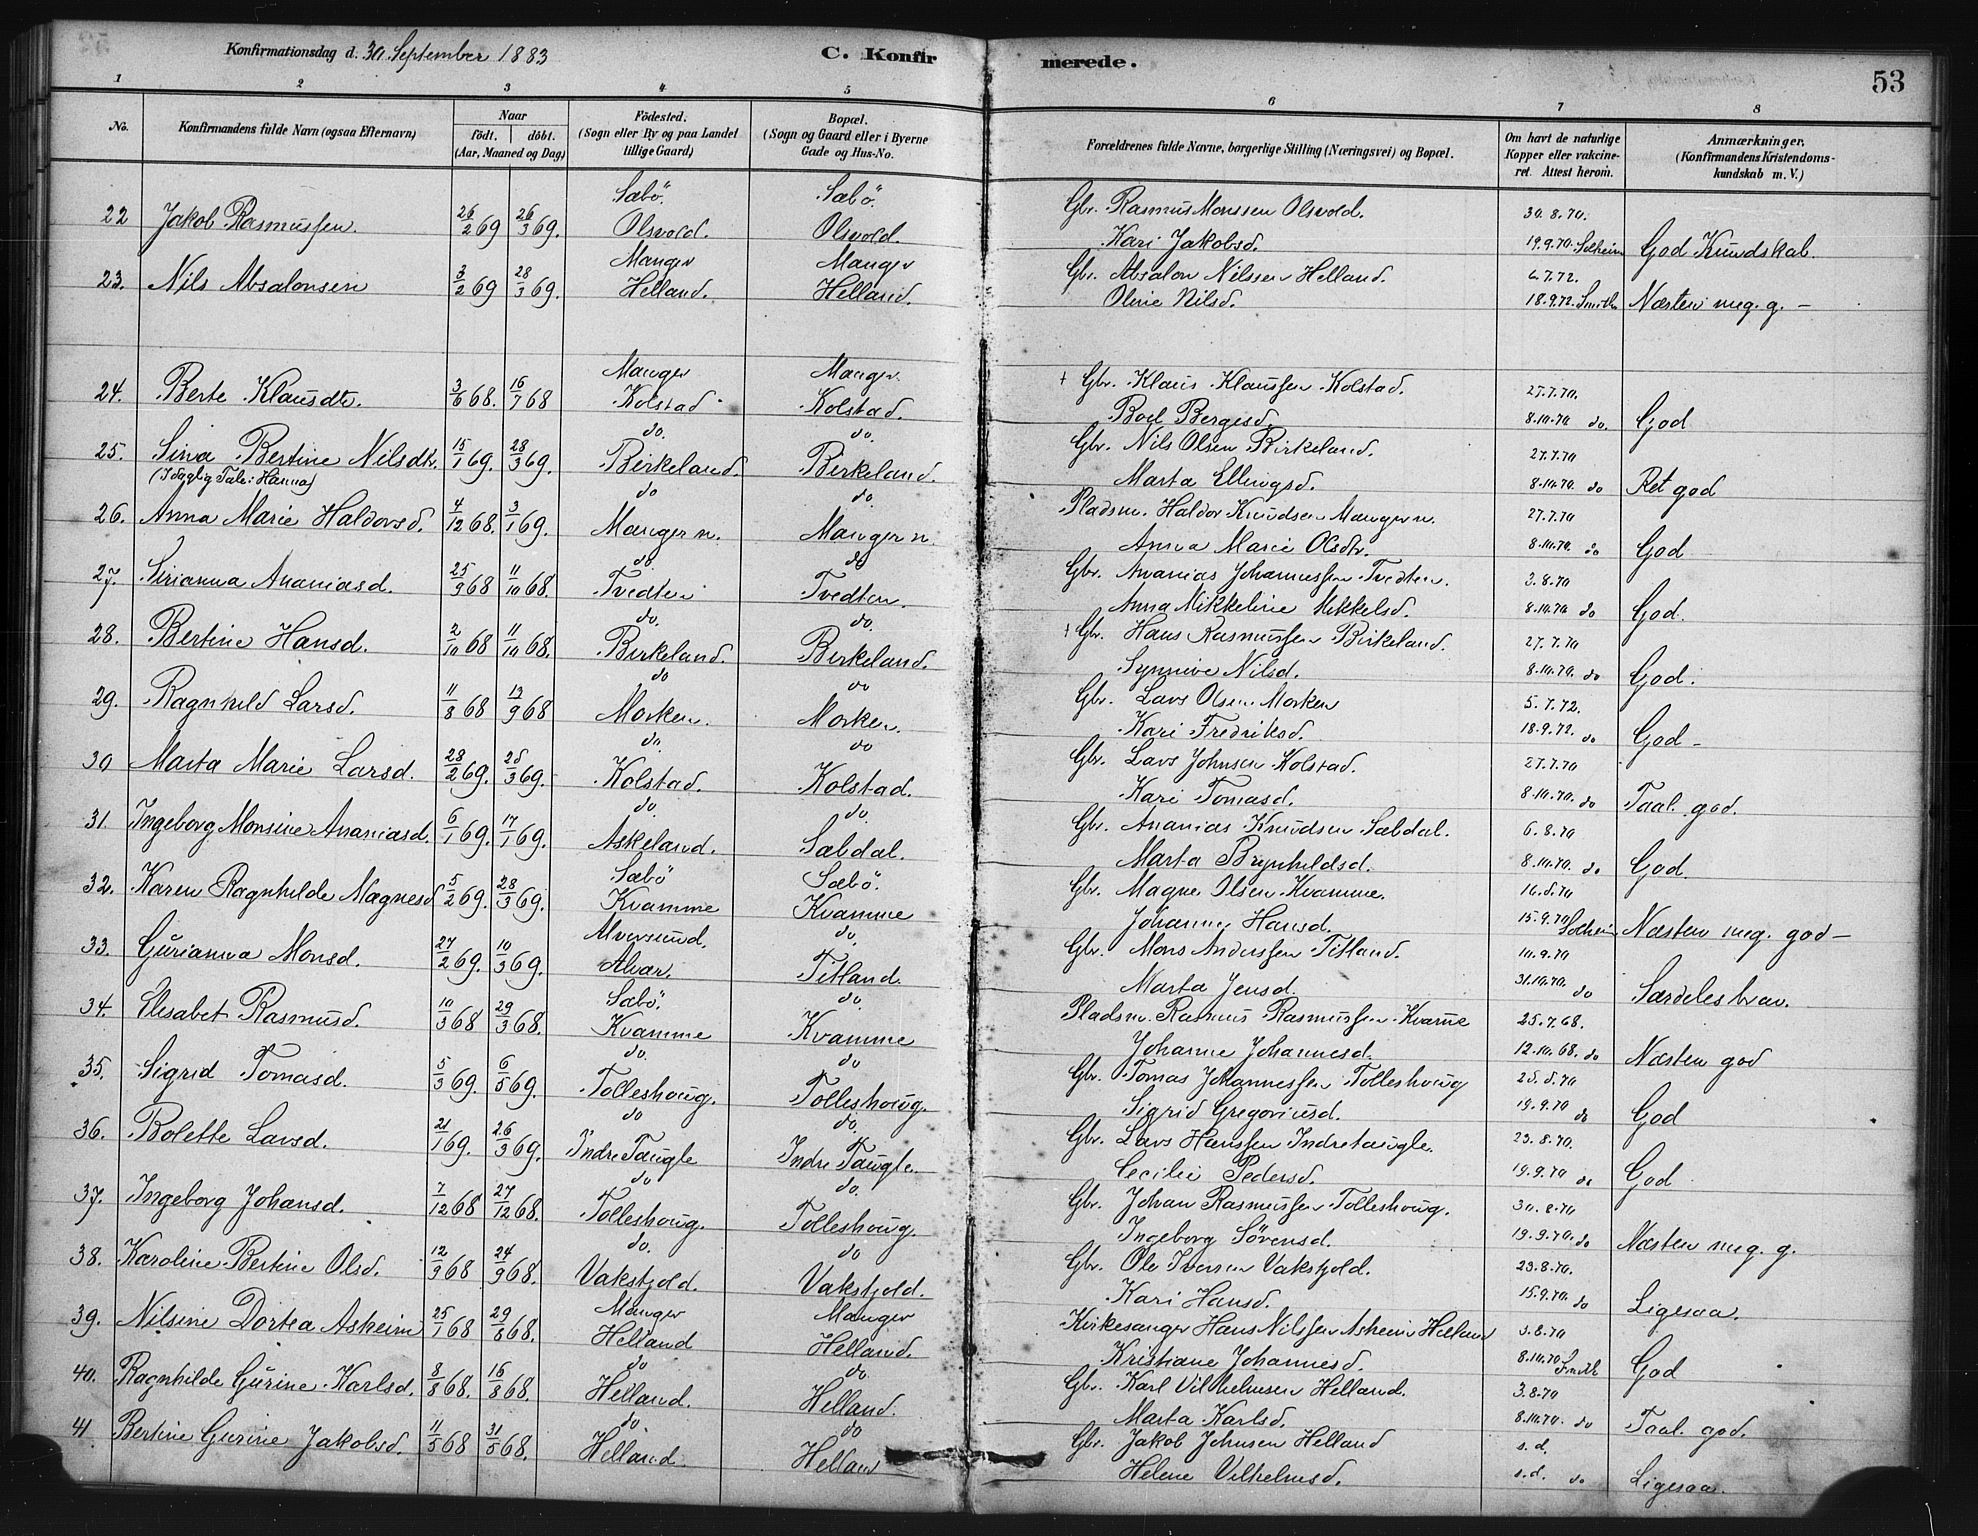 Konfirmationsdag d. 30. September 1883
C. Konfirmerede.
53
1 2 3 4 5 6 7 8
No.
Konfirmandens fulde Navn (ogsaa Efternavn)
Naar
födt. döbt.
(Aar, Maaned og Dag)
Födested.
(Sogn eller By og paa Landet
tillige Gaard)
Bopæl.
(Sogn og Gaard eller i Byerne
Gade og Hus-No.
Forældrenes fulde Navne, borgerlige Stilling (Næringsvei) og Bopæl.
Om havt de naturlige
Kopper eller vakcine-
ret. Attest herom.
Anmærkninger,
(Konfirmandens Kristendoms-
kundskab m. V.)
Sæbö. Sæbö. Gbr. Rasmus Monssen Olsvold. 30.8.70.
22 Jakob Rasmussen. 26/2 69 26/3 69. Olsvold. Olsvold. Kari Jakobsd. 19.9.70. Solheim God Kundskab.
Manger Manger Gbr. Absalon Nilssen Helland. 6.7.72.
23. Nils Absalonsen 3/2 69 28/3 69. Helland. Helland. Oline Nilsd. 18.9.72. Smith Næsten meg. g. –
Manger Manger + Gbr. Klaus Klaussen Kolstad. 27.7.70.
24. Berte Klausdtr. 3/6 68. 16/7 68 Kolstad Kolstad. Boel Bergesd. 8.10.70 do. God
do. do. Gbr. Nils Olsen Birkeland. 27.7.70
25. Sina Bertine Nilsdtr. 15/1 69. 28/3 69. Birkeland. Birkeland. Marta Ellingsd. 8.10.70. do Ret god
(I daglig Tale: Hanna)
do do. Pladsm. Haldor Knudsen Manger n. 27.7.70
26. Anna Marie Haldorsd. 4/12 68. 3/1 69. Manger n. Manger n. Anna Marie Olsdtr. 8.10.70. do God
do. do Gbr. Ananias Johannessen Tvedten. 3.8.70
27. Sirianna Ananiasd. 25/9 68 11/10 68. Tvedten Tvedten. Anna Mikkeline Mikkelsd. 8.10.70 do God.
do. do. + Gbr. Hans Rasmussen Birkeland. 27.7.70
28. Bertine Hansd. 2/10 68 11/10 68. Birkeland. Birkeland. Synnive Nilsd. 8.10.70. do God.
do do Gbr. Lars Olsen Morken 5.7.72.
29. Ragnhild Larsd. 11/8 68 13/9 68 Morken. Morken. Kari Fredriksd. 18.9.72. do God –
do. do Gbr. Lars Johnsen Kolstad. 27.7.70
30 Marta Marie Larsd. 28/2 69. 28/3 69. Kolstad. Kolstad. Kari Tomasd. 8.10.70. do Taal. god.
do do. Gbr. Ananias Knudsen Sæbdal. 6.8.70
31. Ingeborg Monsine Ananiasd. 6/1 69. 17/1 69. Askeland. Sæbdal. Marta Brynhildsd. 8.10.70. do God
Sæbö Sæbö. Gbr. Magne Olsen Kvamme.
32. Karen Ragnhilde Magnesd 5/2 69. 28/3 69. Kvamme Kvamme Johanne Hansd. 15.9.70 Solheim Næsten meg. god –
Alversund. do. Gbr. Mons Anderssen Titland. 10.9.70
33. Gurianna Monsd. 27/2 69. 10/3 69. Alvær. Titland. Marta Jensd. 31.10.70. do Særdeles brav.
Sæbö. do. Pladsm. Rasmus Rasmussen Kvamme 25.7.68.
34. Elisabet Rasmusd. 10/3 68 29/3 68. Kvamme Kvamme Johanne Johannesd. 12.10.68. do Næsten god
do. do Gbr. Tomas Johannessen Tolleshoug
35. Sigrid Tomasd. 5/3 69. 6/5 69. Tolleshoug. Tolleshoug. Sigrid Gregoriusd. 19.9.70 do God
do do. Gbr. Lars Hanssen Indretaugle. 23.8.70.
36. Bolette Larsd. 21/1 69. 26/3 69. Indre Taugle Indre Taugle. Cecilie Pedersd. 19.9.70 do God
do do. Gbr. Johan Rasmussen Tolleshoug. 30.8.70
37. Ingeborg Johansd. 7/12 68 27/12 68. Tolleshoug. Tolleshoug. Ingeborg Sörensd. 19.9.70. do Næsten meg. g.
do. do Gbr. Ole Iversen Vakstjold. 23.8.70.
38. Karoline Bertine Olsd. 12/9 68 24/9 68. Vakstjold. Vakstjold. Kari Hansd. 15.9.70. do Ligesaa.
Manger Manger Kirkesanger Hans Nilssen Askeim Helland 3.8.70
39. Nilsine Dortea Askeim 25/1 68 29/8 68. Helland Helland. Kristiane Johannesd. 8.10.70 Smith God
do do. Gbr. Karl Vilhelmsen Helland. 3.8.70
40. Ragnhilde Gurine Karlsd. 8/8 68. 16/8 68. Helland. Helland. Marta Karlsd. 8.10.70. do Taal. god.
do. do Gbr. Jakob Johnsen Helland s. d.
41 Bertine Gurine Jakobsd. 11/5 68 31/5 68. Helland. Helland Helene Vilhelmsd. s. d. do Ligesaa.